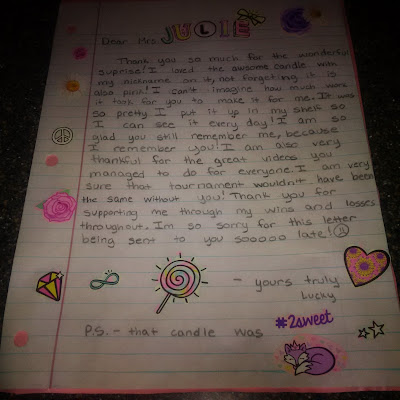 Dear Mrs. JULIE
Thank you so much for the wonderful
suprise! I loved the awsome candle with
my nickname on it, not forgeting it is
also pink! I can't imagine how much work
it took for you to make it for me. It was
so pretty. I put it up in my shelf so
I can see it every day! I am so
glad you still remember me, because
I remember you! I am also very
thankful for the great videos you
managed to do for everyone. I am very
sure that tournament wouldn't have been
the same without you! Thank you for
supporting me through my wins and losses
throughout. Im so sorry for this letter
being sent to you sooooo late!
- yours truly
Lucky
P.S. - that candle was #2sweet